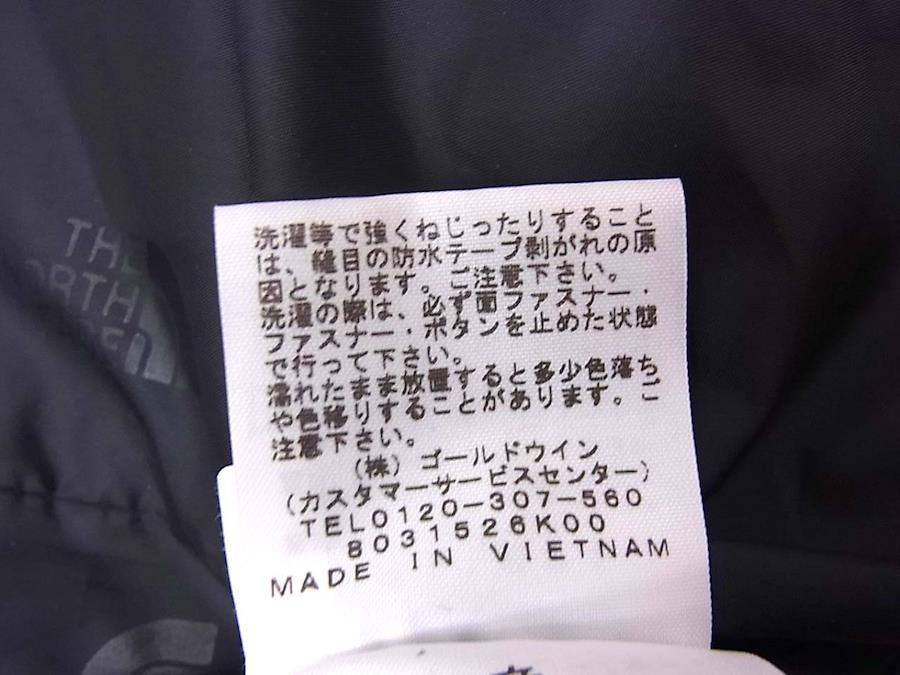 THE
NORTH
洗濯等で強くねじったりすること
は、縫目の防水テープ剥がれの原
因となります。ご注意下さい。
洗濯の際は、必ず面ファスナー・
ファスナー・ボタンを止めた状態
で行って下さい。
濡れたまま放置すると多少色落ち
や色移りすることがあります。ご
注意下さい。
(株) ゴールドウイン
(カスタマーサービスセンター)
TEL0120-307-560
8031526K00
MADE IN VIETNAM